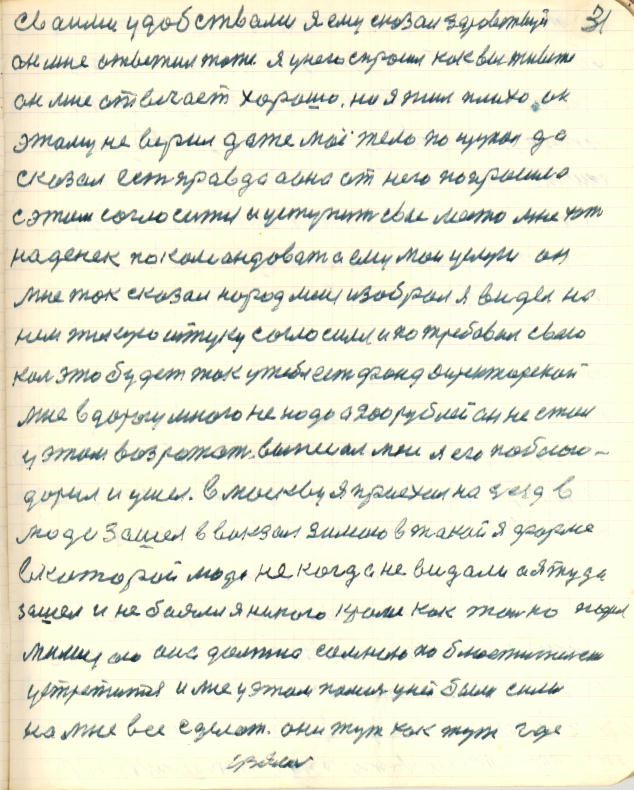 31
своими удобствами я ему сказал здравствуй
он мне ответил тоже я у него спросил как вы живете
он мне отвечает хорошо, но я жил плохо, он
этому не верил даже мое тело по щупал да
сказал есть правда а она от него попросила
с этом согласится и уступить свое место мне хоть
на денек по командовать а ему мои услуги он
мне так сказал народ мене избрал я видел на
нем такую штуку согласился и потребовал своего
кол это будет так у тебя есть фонд директорской
мне в дорогу много не надо а 200 рублей он не стал
у этом возрожат. выписал мне я его поблаго-
дорил и ушел. в москву я приехал на
люди зашел в вокзал зимою в такой я форме
в которой люди не когда не видали а я туда
зашел и не боялся никого кроме как только
она должна со мною по
устретится и мне у этом у ней были силы
на мне все сделат. они тут как тут где
взяли